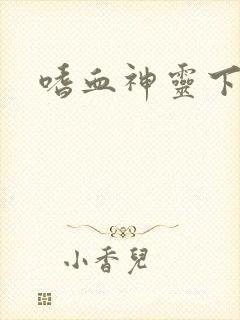 嗜血神靈下
小香兒